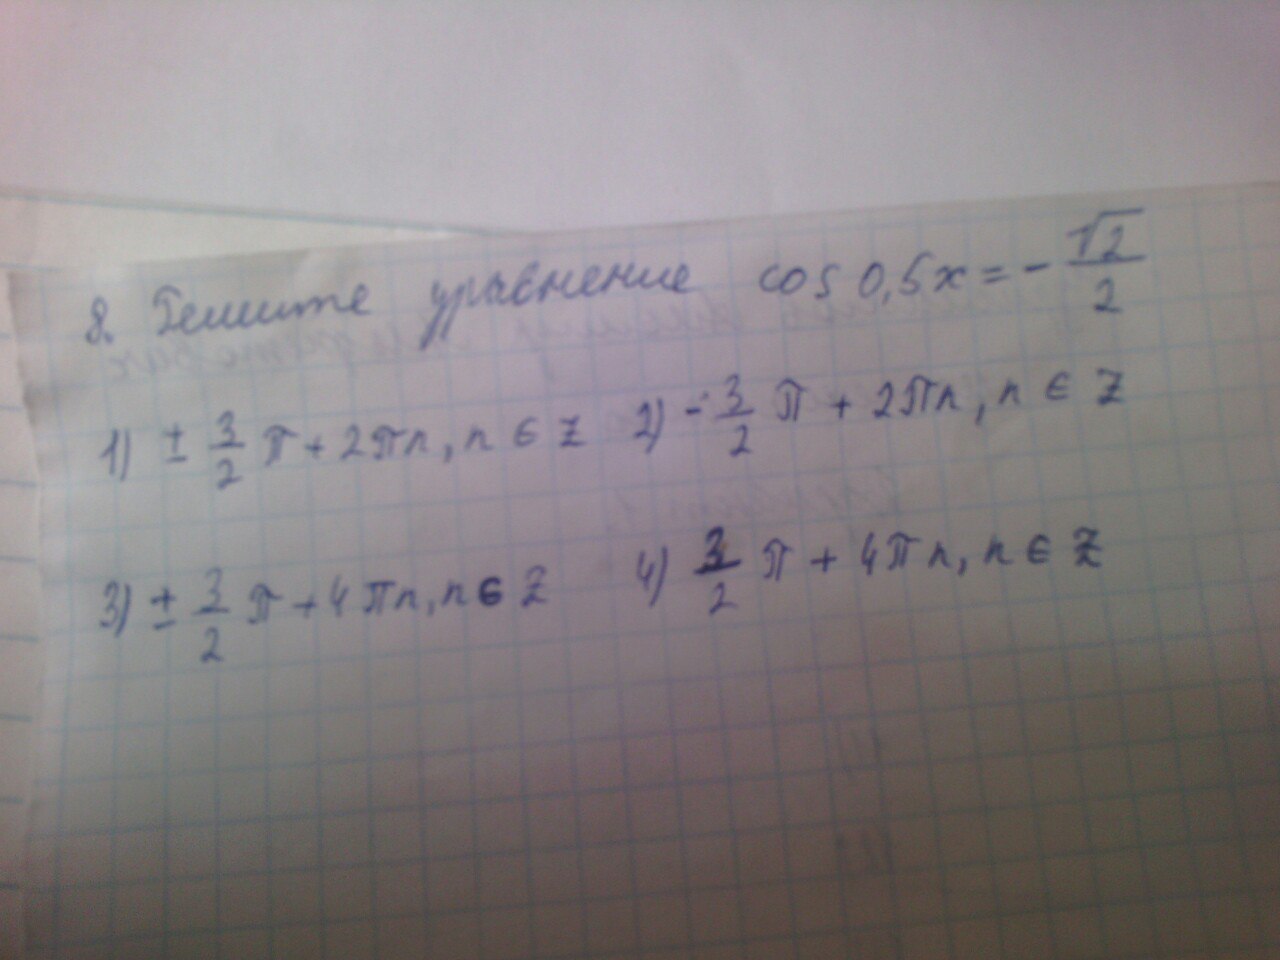 8. Решите уравнение cos 0,5x = - √2/2
1) ± 3/2 π + 2πn, n ∈ Z 2) - 3/2 π + 2πn, n ∈ Z
3) ± 3/2 π + 4πn, n ∈ Z 4) 3/2 π + 4πn, n ∈ Z